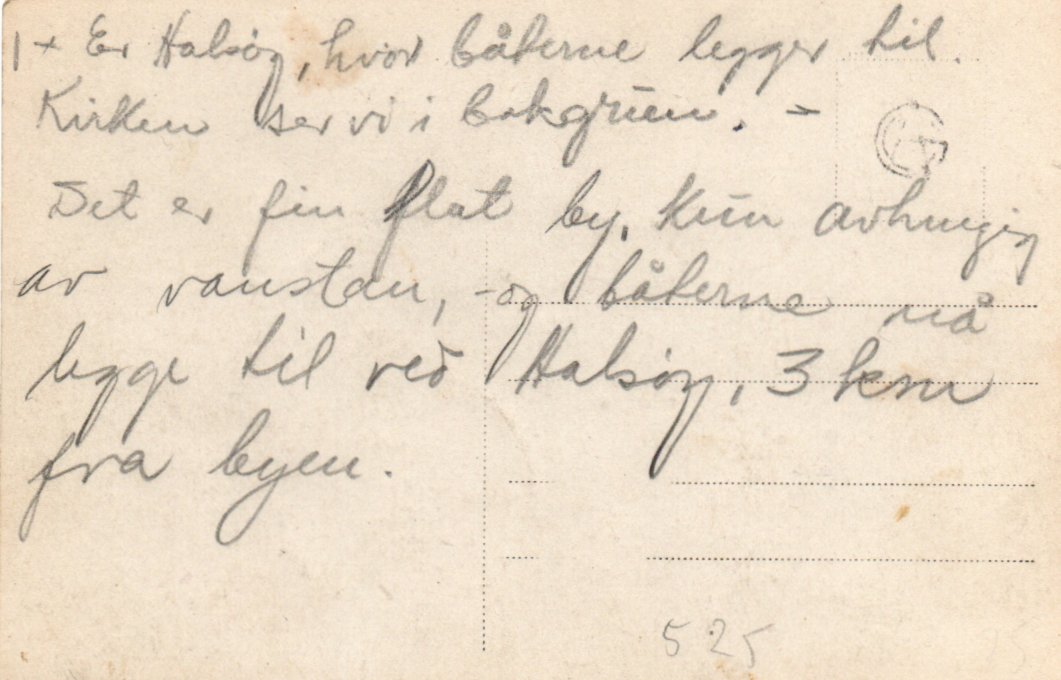 1 + Er Halsøy, hvor båterne legger til.
Kirken ser vi i bakgrunn. -
Det er fin flat by. Kun avhengig
av vanstan, - og båterne må
legge til ved Halsøy, 3 km
fra byen.
525